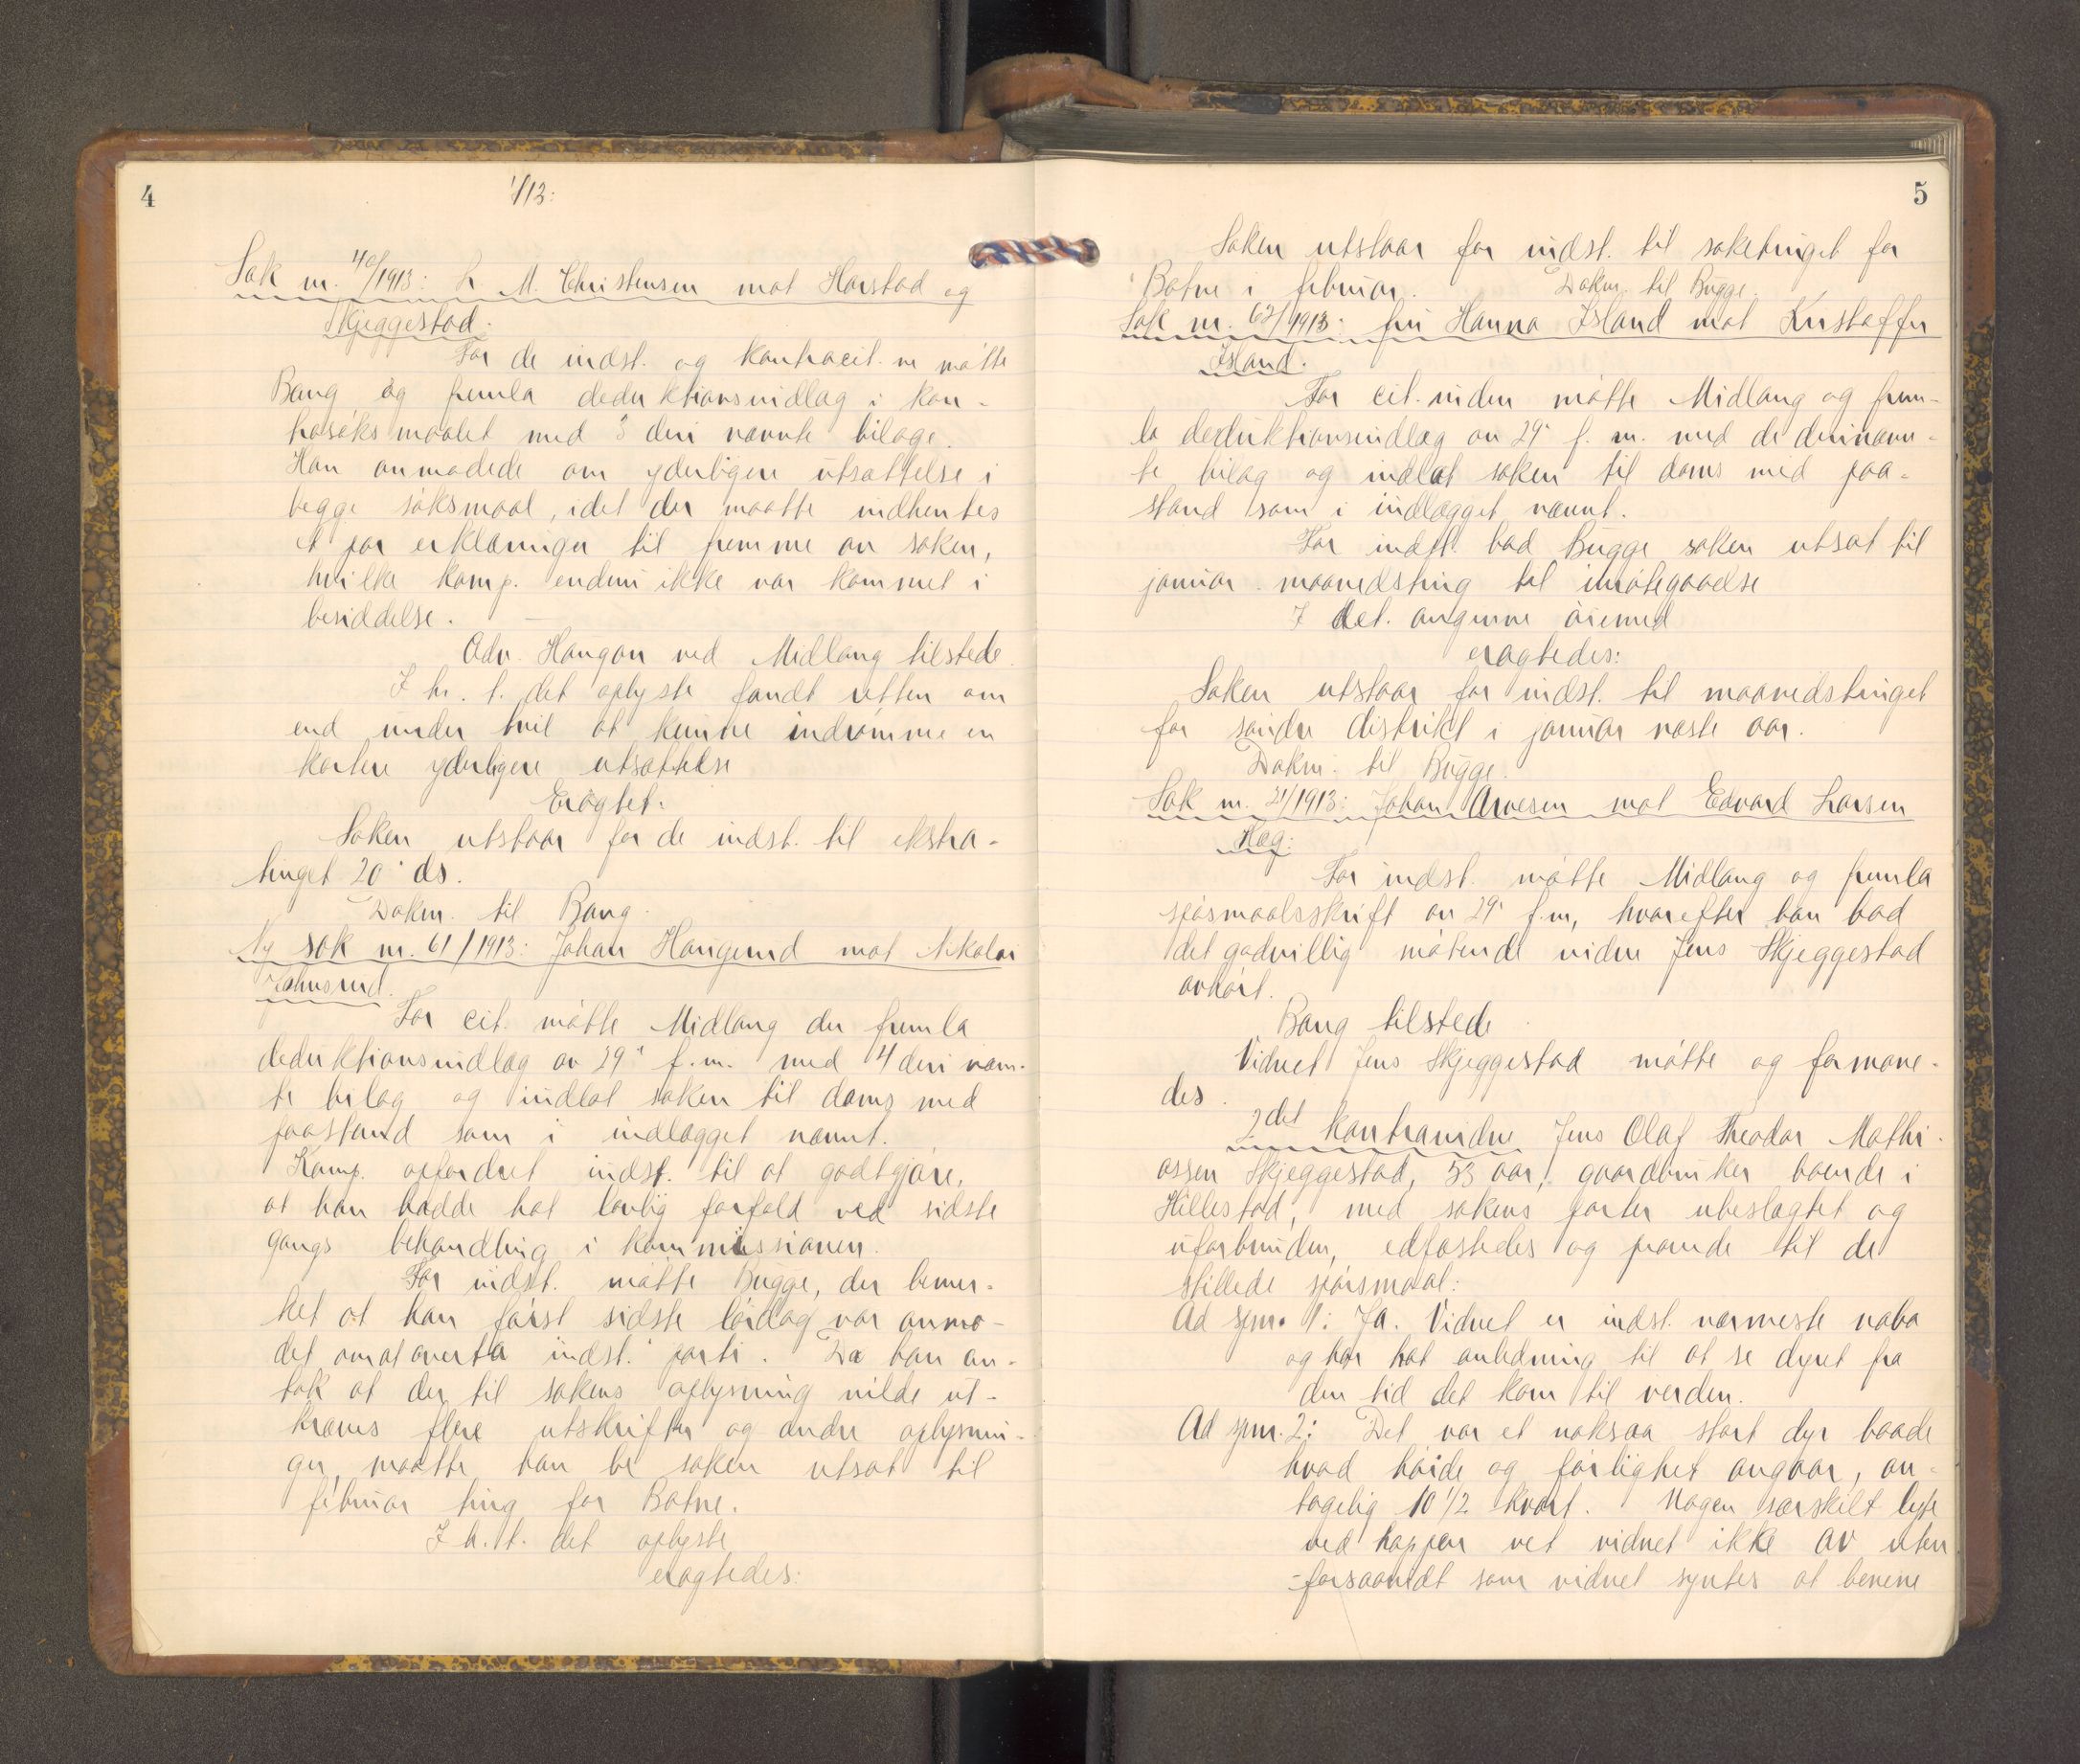 4
1/13:
Sak nr. 40/1913: L. M. Christensen mot Harstad og
Skjeggestad.
For de indst. og kontracit.ne møtte
Bang og fremla deduktionsindlæg i kon-
trasøksmaalet med 3 deri nævnte bilage.
Han anmodede om yderligere utsættelse i
begge søksmaal, idet der maatte indhentes
et par erklæringer til fremme av saken,
hvilke komp. endnu ikke var kommet i
besiddelse.
Adv. Haugan ved Midlang tilstede.
I h. t. det oplyste fandt retten om
end under tvil at kunne indrømme en
kortere yderligere utsættelse
Eragtet:
Saken utstaar for de indst. til ekstra-
tinget 20' ds.
Dokm. til Bang.
Ny sak nr. 61/1913: Johan Haugerud mot Nikolai
For cit. møtte Midlang der fremla
deduktionsindlæg av 29' f.m. med 4 deri nævn-
te bilag og indlot saken til doms med
paastand som i indlægget nævnt.
Komp. opfordret indst. til at godtgjøre,
at han hadde hat lovlig forfald ved sidste
gangs behandling i kommissionen.
For indst. møtte Bugge, der bemer-
ket at han først sidste lørdag var anmo-
det om at overta indst.' parti. Da han an-
tok at der til sakens oplysning vilde ut-
kræves flere utskrifter og andre oplysnin-
ger, maatte han be saken utsat til
februar ting for Botne.
I h. t. det oplyste
eragtedes:
5
Saken utstaar for indst. til saketinget for
Botne i februar. Dokm. til Bugge.
Sak nr. 62/1913: fru Hanna Island mot Kristoffer
Island.
For cit.inden møtte Midlang og frem-
la deduktionsindlæg av 29' f. m. med de deri nævn-
te bilag og indlot saken til doms med paa-
stand som i indlægget nævnt.
For indst. bad Bugge saken utsat til
januar maanedsting til imøtegaaelse
I det angivne øiemed
eragtedes:
Saken utstaar for indst. til maanedstinget
for søndre distrikt i januar næste aar.
Dokm. til Bugge.
Sak nr. 21/1913: Johan Arvesen mot Edvard Larsen
Hæg:
For indst. møtte Midlang og fremla
spøsmaalsskrift av 29' f.m, hvorefter han bad
det godvillig møtende vidne Jens Skjeggestad
avhørt.
Bang tilstede.
Vidnet Jens Skjeggestad møtte og formane-
des.
2det kontravidne Jens Olaf Theodor Mathi-
assen Skjeggestad, 53 aar, gaardbruker boende i
Hillestad, med sakens parter ubeslægtet og
uforbunden, edfæstedes og provede til de
stillede spørsmaal:
Ad spm. 1: Ja. Vidnet er indst. nærmeste nabo
og har hat anledning til at se dyret fra
den tid det kom til verden.
Ad spm. 2: Det var et noksaa stort dyr baade
hvad høide og førlighet angaar, an-
tagelig 10 1/2 kvart. Nogen særskilt lyte
ved hoppen vet vidnet ikke av uten
forsaavidt som vidnet syntes at benene